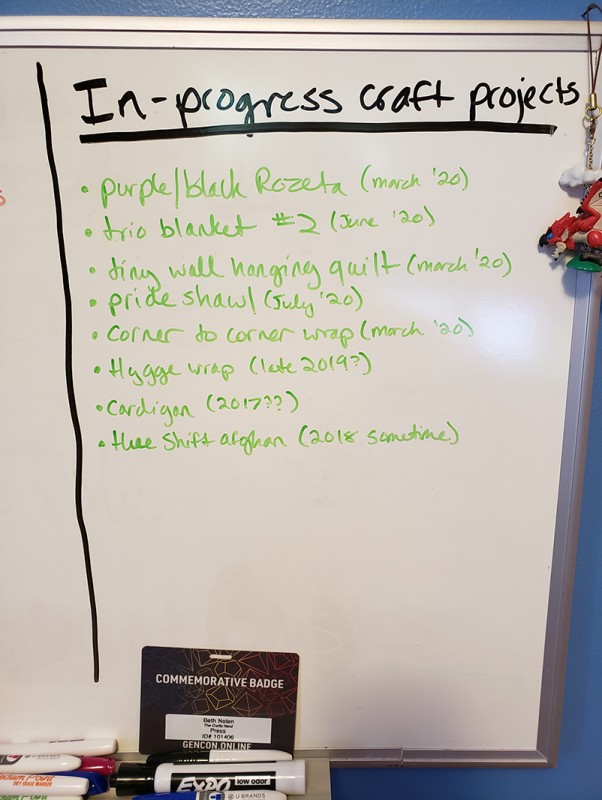 In-progress craft projects
• purple/black Rozeta (march '20)
• trio blanket #2 (June '20)
• tiny wall hanging quilt (march '20)
• pride shawl (July '20)
• Corner to corner wrap (march '20)
• Hygge wrap (late 2019?)
• Cardigan (2017??)
• Hue Shift afghan (2018 sometime)
COMMEMORATIVE BADGE
Beth Nolen
The Crafty Nerd
Press
ID# 101406
GENCON ONLINE
DRY ERASE MARKER
EXPO low odor
U BRANDS